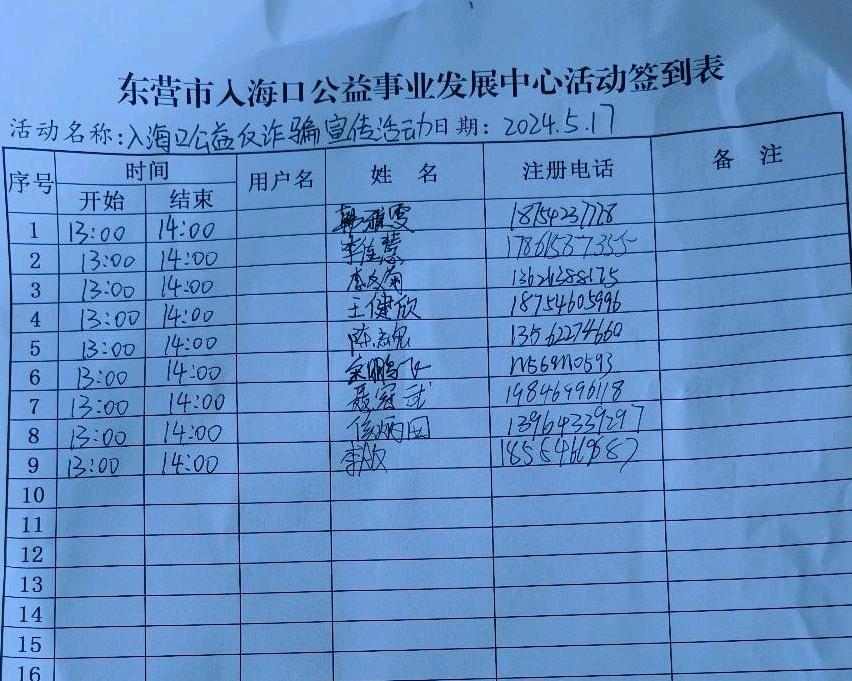 东营市入海口公益事业发展中心活动签到表
活动名称:入海口公益反诈骗宣传活动日期: 2024.5.17
序号 时间 用户名 姓 名 注册电话 备 注
开始 结束
1 13:00 14:00
2 13:00 14:00 17861537355
3 13:00 14:00
4 13:00 14:00 王健欣 18754605996
5 13:00 14:00 13562274660
6 13:00 14:00
7 13:00 14:00 聂冠武 19846996118
8 13:00 14:00 13964339297
9 13:00 14:00
10
11
12
13
14
15
16